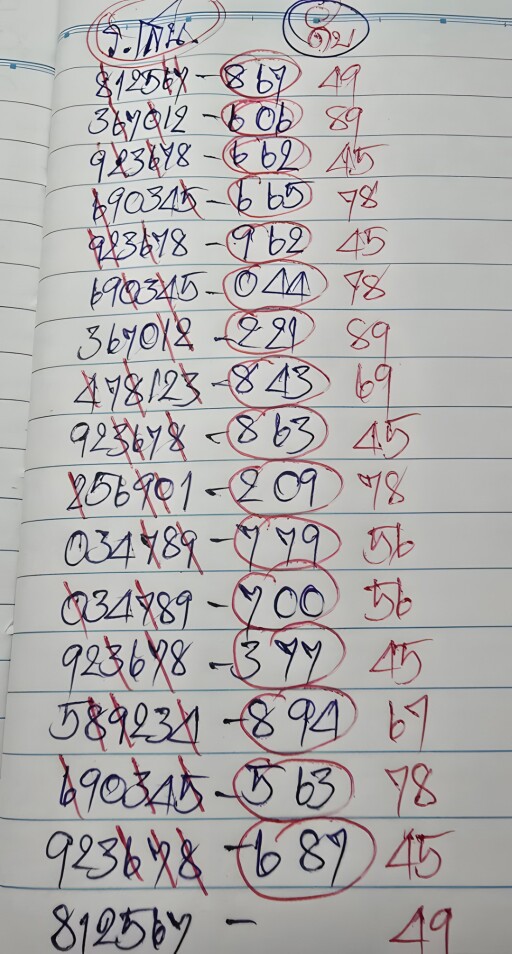 จ.โทน ดับ
812567 - 867 49
367012 - 606 89
923678 - 662 45
690345 - 665 78
923678 - 962 45
690345 - 044 78
367012 - 221 89
478123 - 843 69
923678 - 863 45
256901 - 209 78
034789 - 779 56
034789 - 700 56
923678 - 377 45
589234 - 894 67
690345 - 563 78
923678 - 687 45
812567 - 49